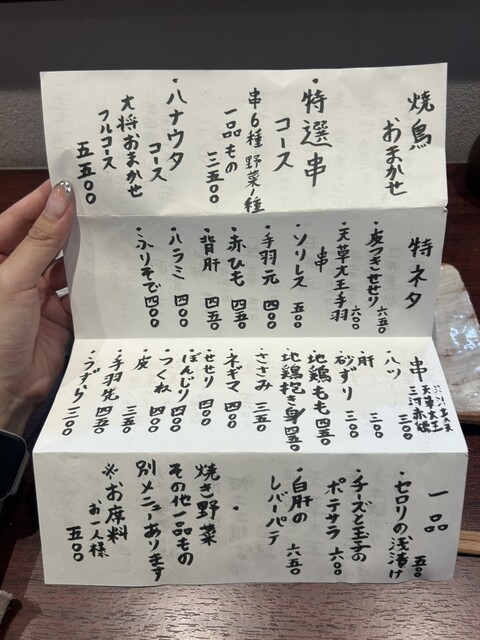 焼鳥
おまかせ
・特選串
コース
串6種野菜1種
一品もの
三五〇〇
・ハナウタ
コース
大将おまかせ
フルコース
五五〇〇
特ネタ
・皮つきせせり 六五〇
・天草大王手羽
串 六〇〇
・ソリレス 五〇〇
・手羽元 四〇〇
・赤ひも 四五〇
・背肝 四五〇
・ハラミ 四〇〇
・ふりそで 四〇〇
串
天草大王
三河赤鶏
・ハツ 三〇〇
肝 三〇〇
砂ずり 三〇〇
地鶏もも 四五〇
地鶏抱き身 四五〇
・ささみ 三五〇
・ネギマ 四〇〇
・せせり 四〇〇
・ぼんじり 四〇〇
・つくね 四〇〇
・皮 三五〇
・手羽先 四五〇
・うずら 三〇〇
一品
・セロリの浅漬け 五〇〇
・チーズと玉子の
ポテサラ 六〇〇
・白肝の
レバーパテ 六五〇
・焼き野菜
その他一品もの
別メニューあります
※お席料
お一人様
五〇〇